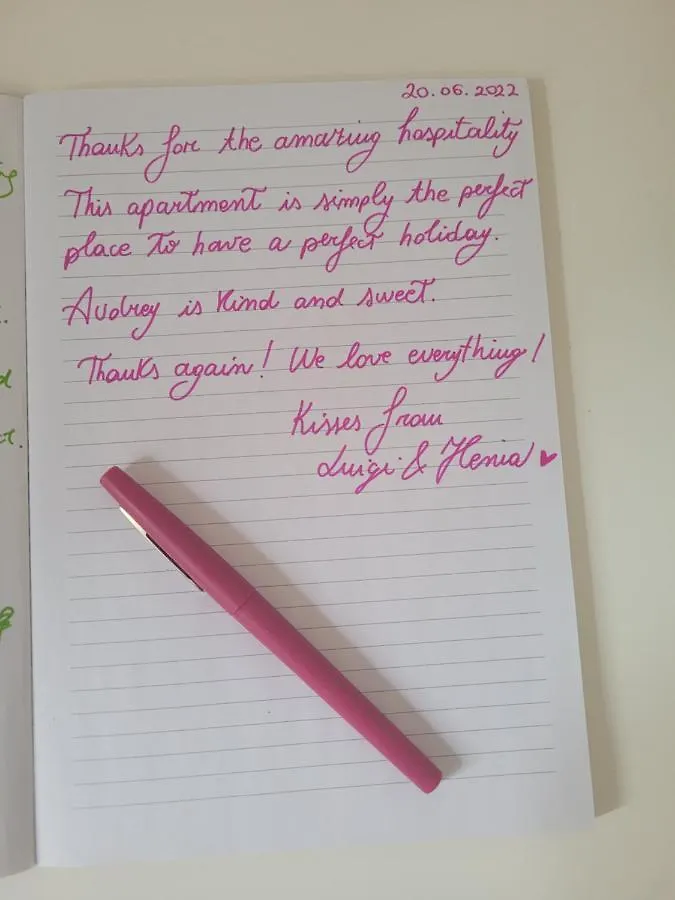 20.06.2022
Thanks for the amazing hospitality
This apartment is simply the perfect
place to have a perfect holiday.
Audrey is kind and sweet.
Thanks again! We love everything!
Kisses from
Luigi & Henia ♥